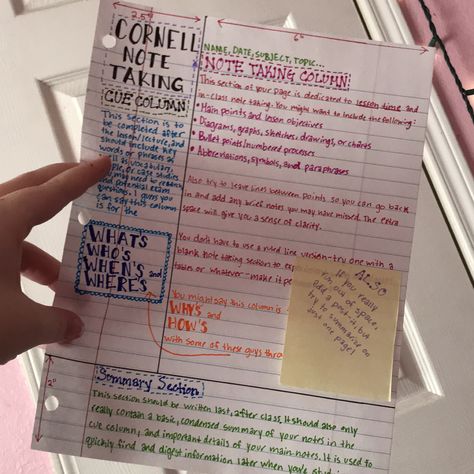 2.5"
6"
CORNELL
NOTE
TAKING
CUE COLUMN
This section is to
be completed after
the lesson/lecture, and
should include key
words or phrases of
vocabulary,
or case studies
may need to research
and potential exam
questions. I guess you
can say this column
is for the
WHATS
WHO'S
WHEN'S and
WHERE'S
NAME, DATE, SUBJECT, TOPIC...
NOTE TAKING COLUMN
This section of your page is dedicated to lesson time and
in-class note taking. You might want to include the following:
• Main points and lesson objectives
• Diagrams, graphs, sketches, drawings, or charts
• Bullet points/numbered processes
• Abbreviations, symbols, and paraphrases
Also try to leave lines between points so you can go back
in and add any brief notes you may have missed. The extra
space will give you a sense of clarity.
You don't have to use a ruled line version- try one with a
blank note taking section to
tables or whatever- make it
You might say this column is
WHYS and
HOW'S
with some of these guys
ALSO
If you really
run out of space,
add a post it, but
try to summarize on
just one page!
2"
Summary Section
This section should be written last, after class. It should also only
really contain a basic, condensed summary of your notes in the
cue column, and important details of your main notes. It is used to
quickly find and digest information later when you're